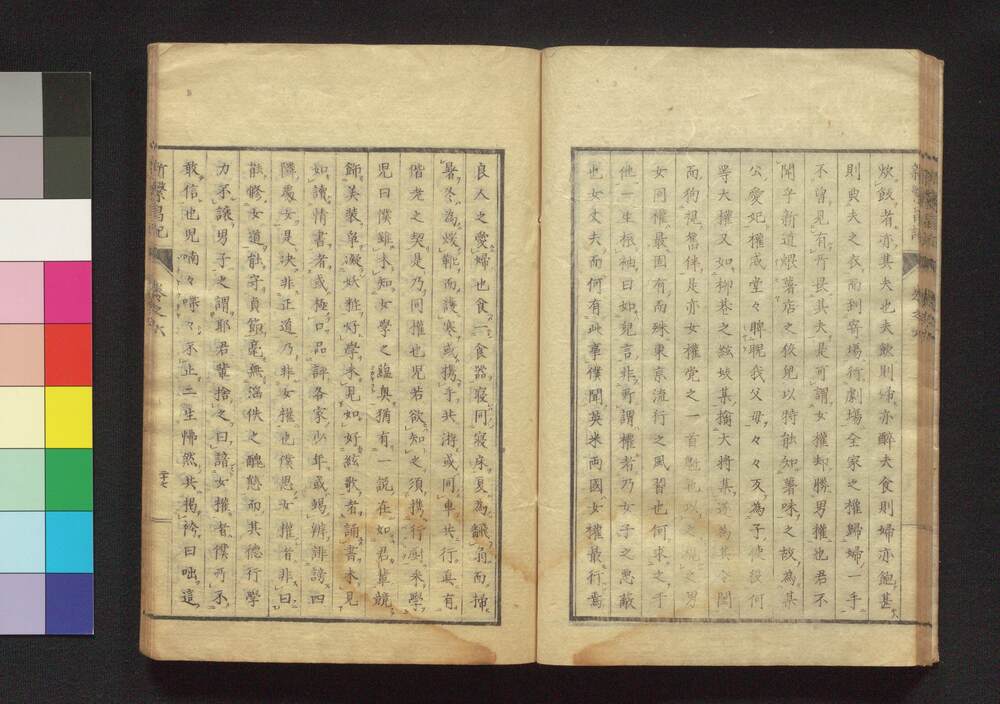 炊飯者亦其夫也夫飲則婦亦醉夫食則婦亦飽甚
則典夫之衣而到寄場行劇場全家之權歸婦一手
不曾見有所畏其夫是可謂女權却勝男權也君不
聞乎新道煨薯店之依兒以特能知薯味之故為某
公愛妃權威堂々睥睨我父母々々反為子使役何
等大權又如柳巷之絃妓某擒大將某為其令閨
而狗視舊伴是亦女權党之一首魁也以之觀之男
女同權最固有而殊東京流行之風習也何求之于
他一生振袖曰如兒言非所謂權者乃女子之惡敝
也女丈夫而何有此事僕聞英米両國女權最行焉
良人之愛婦也食一食器寢同寢床夏為飜扇而掃
暑冬為煖靴而護寒或携手共游或同車共行真有
偕老之契是乃同權也兒若欲知之須携行厨来學
児曰僕雖未知女學之蘊奥猶有一説在如君輩競
飾美裝皐凝妖粧好學未見如好絃歌者誦書未見
如讀情書者或極口品評各家少年或賜辨誹謗四
隣處女是決非正道乃非女權也僕思女權者非曰
能修女道能守貞節毫無滛佚之醜態而其德行學
力不讓男子之謂耶君輩捨之曰諳女權者僕所不
敢信也児喃々喋々不止二生怫然共揭袴曰咄這
新學
卷之六
二十七